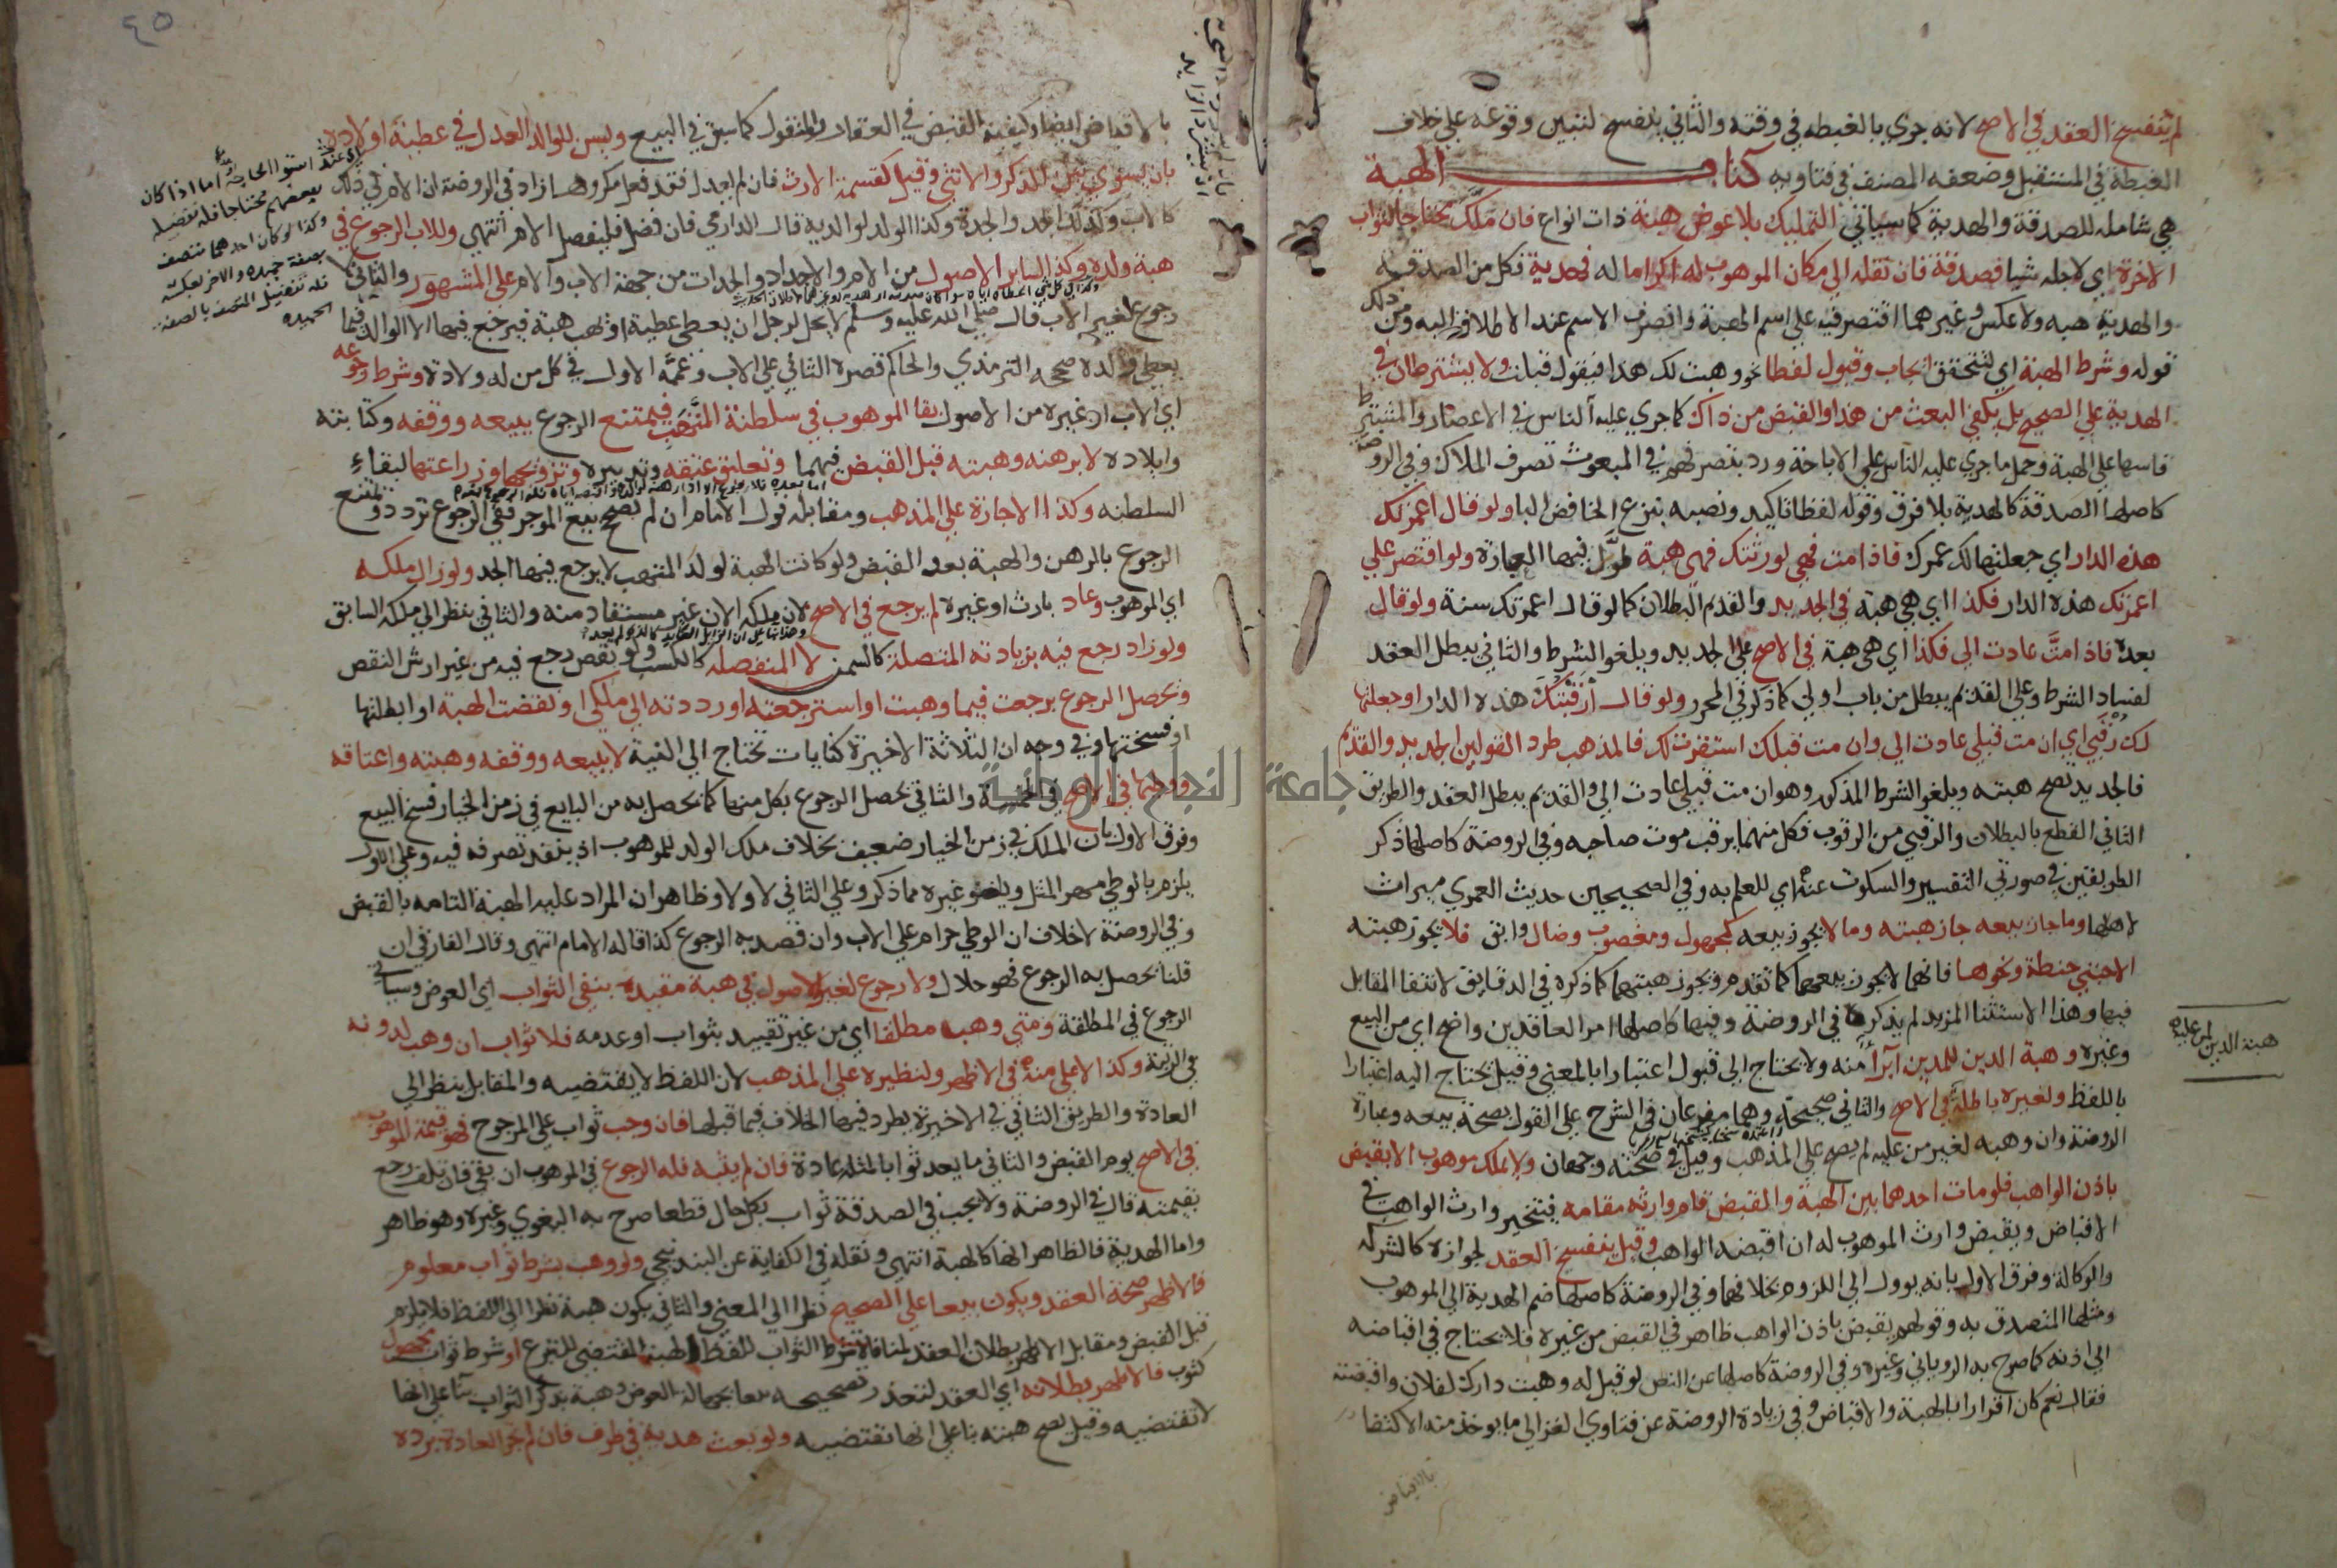 لم ينفسخ العقد في الاصح لانه جري بالغبطه في وقته والثاني ينفسخ لتبين وقوعه علي خلاف
الغبطة في المستقبل وضعفه المصنف في فتاويه كتاب الهبة
هي شامله للصدقة والهدية كما سياتي التمليك بلا عوض هبة ذات انواع فان ملك محتاجا لثواب
الاخرة اي لاجله شيا فصدقة فان نقله الي مكان الموهوب له اكراما له فهدية فكل من الصدقة
والهدية هبه ولا عكس وغيرهما اقتصر فيه علي اسم الهبة وانصرف الاسم عند الاطلاق اليه ومن ذلك
قوله وشرط الهبة اي لتتحقق ايجاب وقبول لفظا نحو وهبت لك هذا فيقول قبلت ولا يشترطان في
الهدية علي الصحيح بل يكفي البعث من هذا والقبض من ذاك كما جري عليه الناس في الاعصار والمشترط
قاسها علي الهبة وحمل ما جري عليه الناس علي الاباحة ورد بتصرفهم في المبعوث تصرف الملاك وفي الروضة
كاصلها الصدقة كالهدية بلا فرق وقوله لفظا تاكيد ونصبه بنزع الخافض البا ولو قال اعمرتك
هذه الدار اي جعلتها لك عمرك فاذا مت فهي لورثتك فهي هبة طول فيها العبارة ولو اقتصر علي
اعمرتك هذه الدار فكذا اي هي هبة في الجديد والقديم البطلان كما لو قال اعمرتك سنة ولو قال
بعده فاذا مت عادت الي فكذا اي هي هبة في الاصح علي الجديد ويلغو الشرط والثاني يبطل العقد
لفساد الشرط وعلي القديم يبطل من باب اولي كما ذكر في المحرر ولو قال ارقبتك هذه الدار او جعلتها
لك رقبي اي ان مت قبلي عادت الي وان مت قبلك استقرت لك فالمذهب طرد القولين الجديد والقديم
فالجديد يصح هبته ويلغو الشرط المذكور وهو ان مت قبلي عادت الي والقديم يبطل العقد والطريق
الثاني القطع بالبطلان والرقبي من الرقوب فكل منهما يرقب موت صاحبه وفي الروضة كاصلها ذكر
الطريقين في صورتي التفسير والسكوت عنه اي للعلم به وفي الصحيحين حديث العمري ميراث
لاهلها وما جاز بيعه جاز هبته وما لا يجوز بيعه كمجهول ومغصوب وضال وابق فلا يجوز هبته
الا حبتي حنطة ونحوها فانهما لا يجوز بيعهما كما تقدم ويجوز هبتهما كما ذكره في الدقايق لانتفا المقابل
فيها وهذا الاستثنا المزيد لم يذكره في الروضة وفيها كاصلها امر العاقدين واضح اي من البيع
وغيره وهبة الدين للمدين ابراء منه ولا يحتاج الي قبول اعتبارا بالمعني وقيل يحتاج اليه اعتبارا
باللفظ ولغيره باطلة في الاصح والثاني صحيحة وهما مفرعان في الشرح علي القول بصحة بيعه وعبارة
الروضة وان وهبه لغير من عليه لم يصح علي المذهب وقيل في صحته وجهان ولا يملك موهوب الا بقبض
باذن الواهب فلو مات احدهما بين الهبة والقبض قام وارثه مقامه فيتخير وارث الواهب في
الاقباض ويقبض وارث الموهوب له ان اقبضه الواهب وقيل ينفسخ العقد لجوازه كالشركة
والوكالة وفرق الاول بانه يوول الي اللزوم بخلافهما وفي الروضة كاصلها ضم الهدية الي الموهوب
ومثلها المتصدق به وقولهم يقبض باذن الواهب ظاهر في القبض من غيره فلا يحتاج في اقباضه
الي اذنه كما صرح به الروياني وغيره وفي الروضة كاصلها عن النص لو قيل له وهبت دارك لفلان واقبضته
فقال نعم كان اقرارا بالهبة والاقباض وفي زيادة الروضة عن فتاوي الغزالي ما يوخذ منه الاكتفا
بالاقباض
هبة الدين لمن عليه
٤٥
بالاقباض ايضا وكيفية القبض في العقار والمنقول كما سبق في البيع وليس للوالد العدل في عطية اولاده
بان يسوي بين الذكر والانثي وقيل كقسمة الارث فان لم يعدل فقد فعل مكروها زاد في الروضة ان الام في ذلك
كالاب وكذلك الجد والجدة وكذا الولد لوالديه قال الدارمي فان فضل فليفضل الام انتهي وللاب الرجوع في
هبة ولده وكذا لساير الاصول من الام والاجداد والجدات من جهة الاب والام علي المشهور والثاني لا
رجوع لغير الاب قال صلي الله عليه وسلم لا يحل لرجل ان يعطي عطية او يهب هبة فيرجع فيها الا الوالد فيما
يعطي ولده صححه الترمذي والحاكم قصره الثاني علي الاب وعممه الاول في كل من له ولادة وشرط رجوعه
اي الاب او غيره من الاصول بقا الموهوب في سلطنة المتهب فيمتنع الرجوع ببيعه ووقفه وكتابته
وايلاده لا برهنه وهبته قبل القبض فيهما وتعليق عتقه وتدبيره وتزويجها وزراعتها لبقاء
السلطنه وكذا الاجارة علي المذهب ومقابله قول الامام ان لم يصح بيع الموجر ففي الرجوع تردد ويمتنع
الرجوع بالرهن والهبة بعد القبض ولو كانت الهبة لولد المتهب لا يرجع فيها الجد ولو زال ملكه
اي الموهوب وعاد بارث او غيره لم يرجع في الاصح لان ملكه الان غير مستفاد منه والثاني ينظر الي ملكه السابق
ولو زاد رجع فيه بزيادته المتصلة كالسمن لا المنفصلة كالكسب ولو نقص رجع فيه من غير ارش النقص
وتحصل الرجوع برجعت فيما وهبت او استرجعته او رددته الي ملكي او نقضت الهبة او ابطلتها
او فسختها وفي وجه ان الثلاثة الاخيرة كنايات تحتاج الي النية لا ببيعه ووقفه وهبته واعتاقه
ووطئها في الاصح في الخمسة والثاني يحصل الرجوع بكل منها كما يحصل به من البايع في زمن الخيار فسخ البيع
وفرق الاول بان الملك في زمن الخيار ضعيف بخلاف ملك الولد للموهوب اذ ينفذ تصرفه فيه وعلي الاول
يلزم بالوطي مهر المثل ويلغو غيره مما ذكر وعلي الثاني لا ولا وظاهر ان المراد عليه الهبة التامه بالقبض
وفي الروضة لا خلاف ان الوطي حرام علي الاب وان قصد به الرجوع كذا قاله الامام انتهي وقال الفارقي ان
قلنا يحصل به الرجوع فهو حلال ولا رجوع لغير الاصول في هبة مقيدة بنفي الثواب اي العوض وسياتي
الرجوع في المطلقة ومتي وهب مطلقا اي من غير تقييد بثواب او عدمه فلا ثواب ان وهب لدونه
في الرتبة وكذا الاعلي منه في الاظهر ولنظيره علي المذهب لان اللفظ لا يقتضيه والمقابل ينظر الي
العادة والطريق الثاني في الاخيرة يطرد فيها الخلاف فيما قبلها فان وجب ثواب علي المرجوح فهو قيمة الموهوب
في الاصح يوم القبض والثاني ما يعد ثوابا لمثله عادة فان لم يثبه فله الرجوع في الموهوب ان بقي فان تلف رجع
بقيمته قال في الروضة ولا يجب في الصدقة ثواب بكل حال قطعا صرح به البغوي وغيره وهو ظاهر
واما الهدية فالظاهر انها كالهبة انتهي ونقله في الكفاية عن البندنيجي ولو وهب بشرط ثواب معلوم
فالاظهر صحة العقد ويكون بيعا علي الصحيح نظرا الي المعني والثاني يكون هبة نظرا الي اللفظ فلا يلزم
قبل القبض ومقابل الاظهر بطلان العقد لمنافاة شرط الثواب للفظ الهبة المقتضي للتبرع او شرط ثواب مجهول
كثوب فالاظهر بطلانه اي العقد لتعذر تصحيحه بيعا بجهالة العوض وهبة بذكر الثواب بناء علي انها
لا تقتضيه وقيل يصح هبته بنا علي انها تقتضيه ولو بعث هدية في ظرف فان لم تجر العادة برده
اي عند استوا الحاجة اما اذا كان
بعضهم محتاجا فله تفضيله
وكذا لو كان احدهما متصف
بصفة حميده والاخر بعكسه
فله تفضيل المتصف بالصفة
الحميده
جامعة النجاح الوطنية